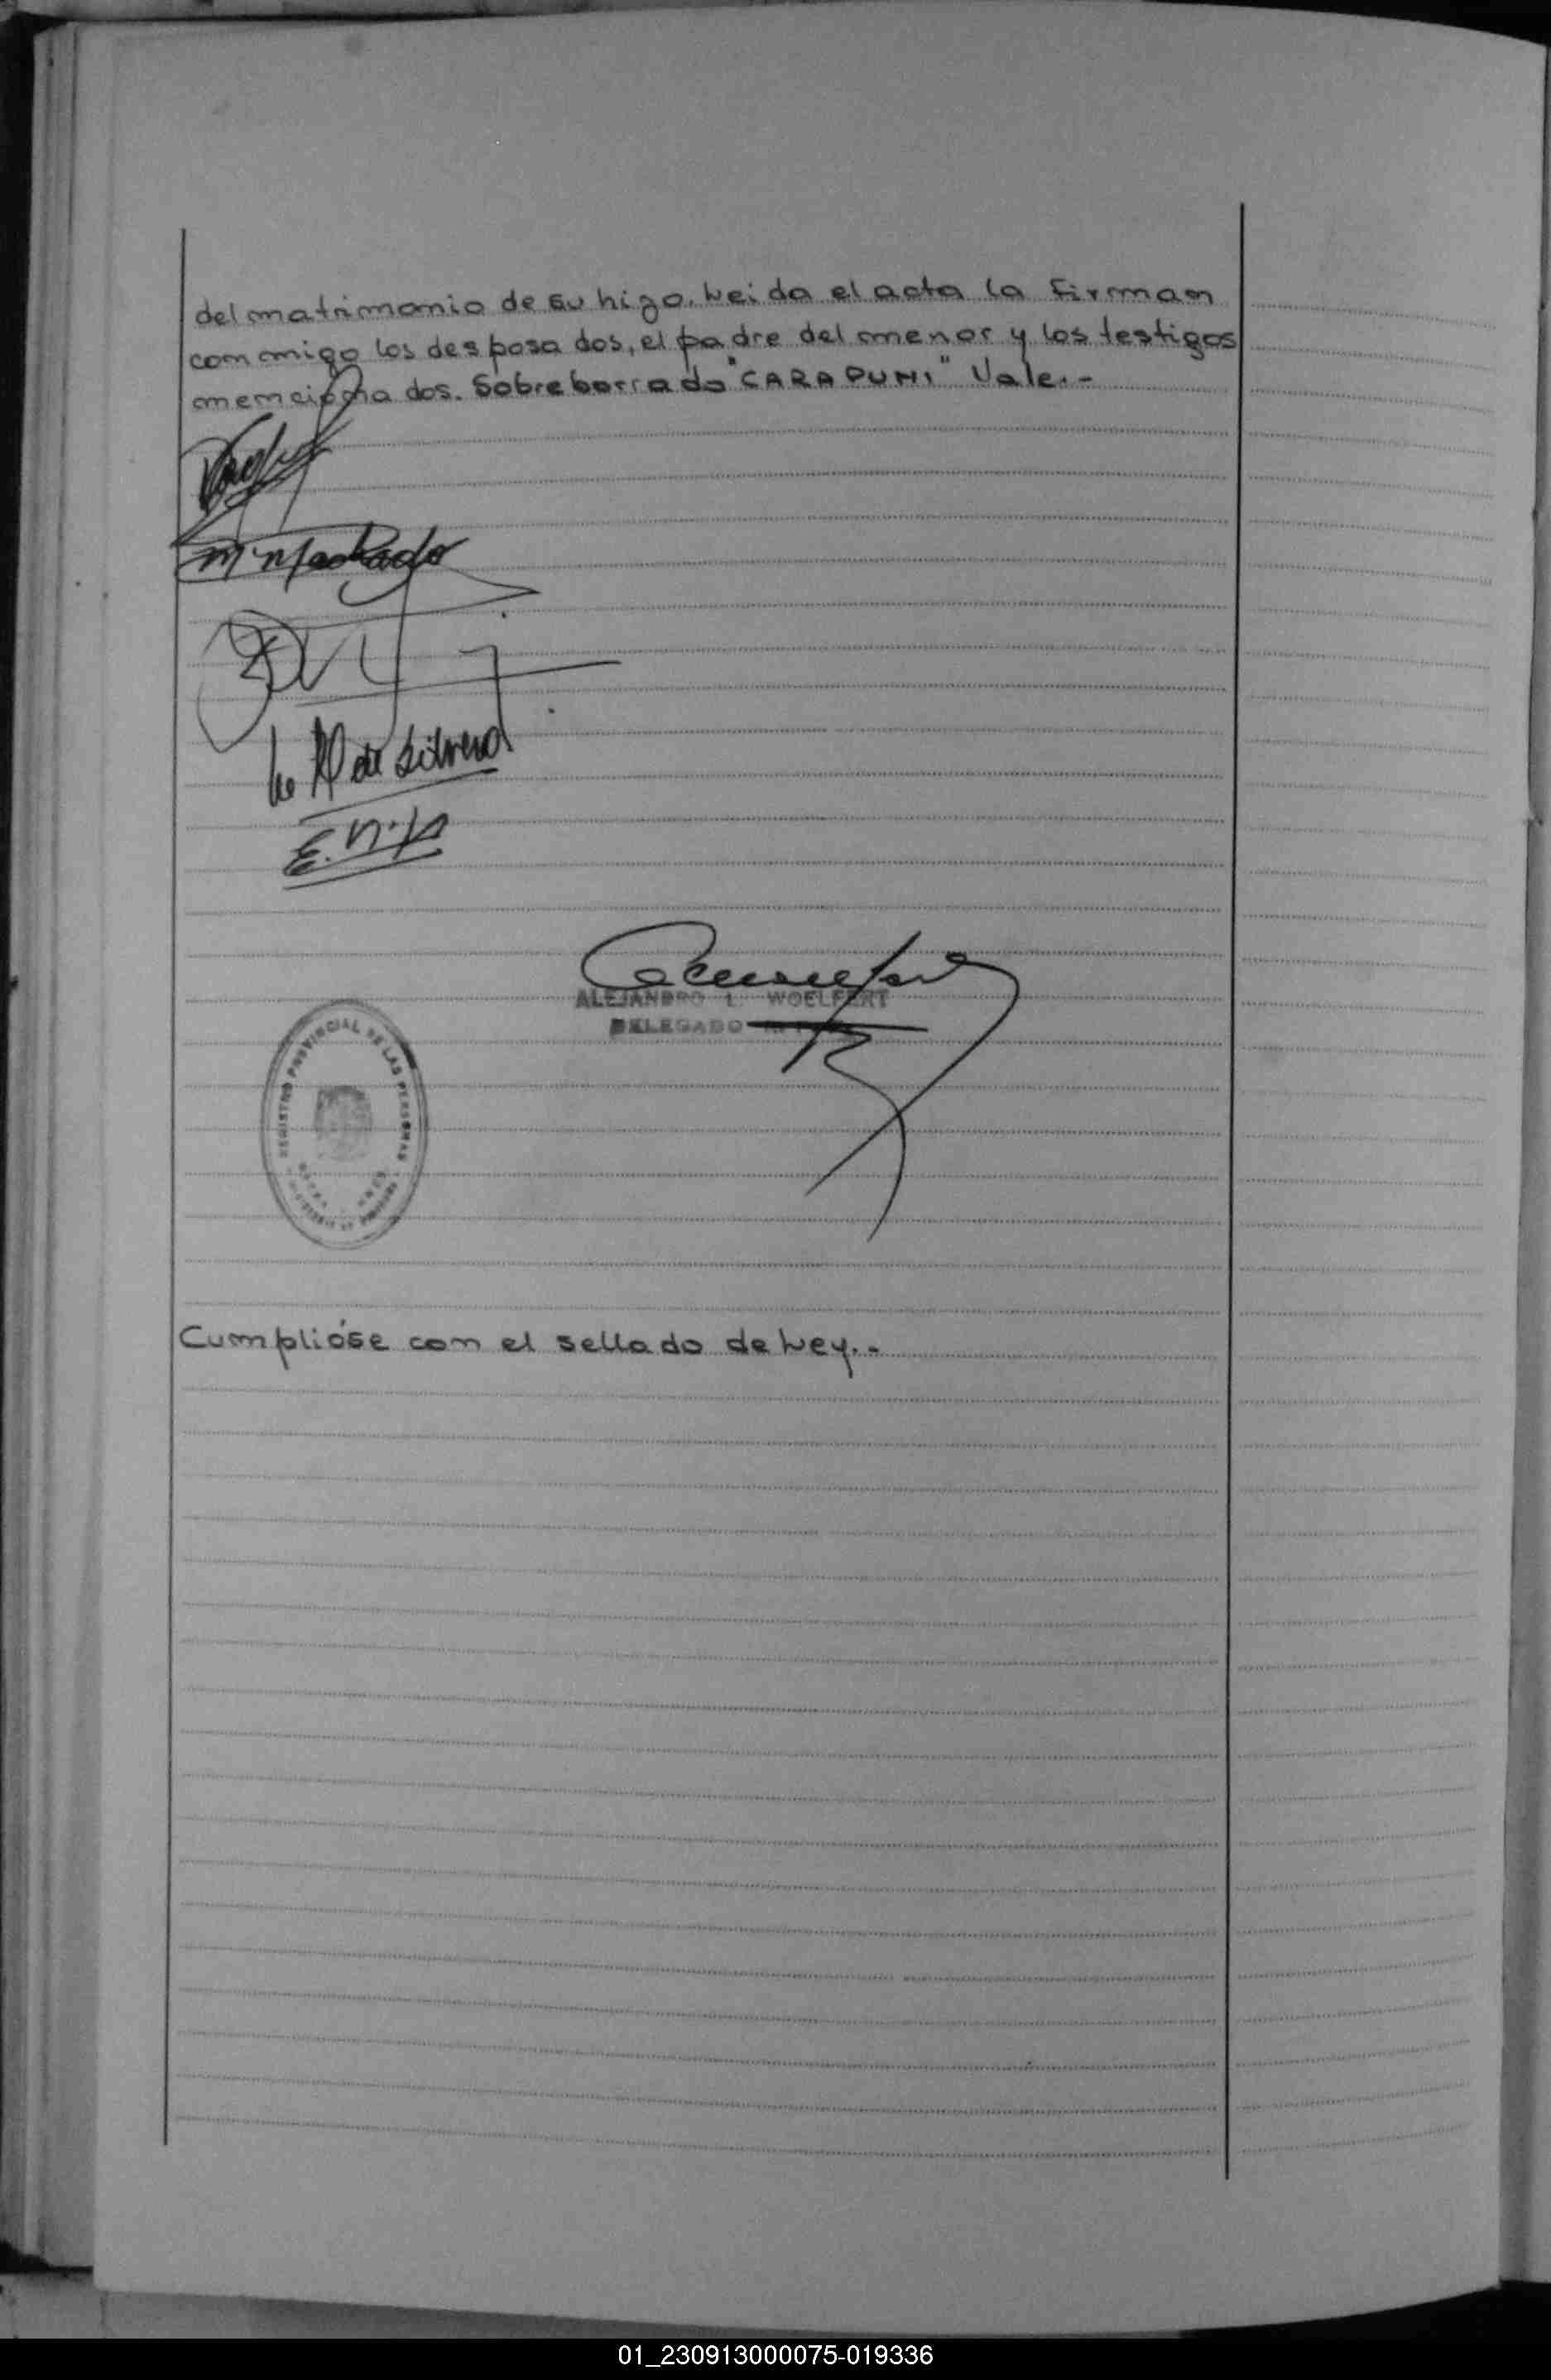 del matrimonio de su higo. Leida el acta la firman
conmigo los desposados, el padre del menor y los testigos
mencionados. Sobreborrado "CARAPUMI" Vale.-
M. Machado
de Silvera
E. N.
ALEJANDRO L. WOELFERT
DELEGADO
REGISTRO PROVINCIAL DE LAS PERSONAS
Cumplióse con el sellado de Ley.-
01_230913000075-019336